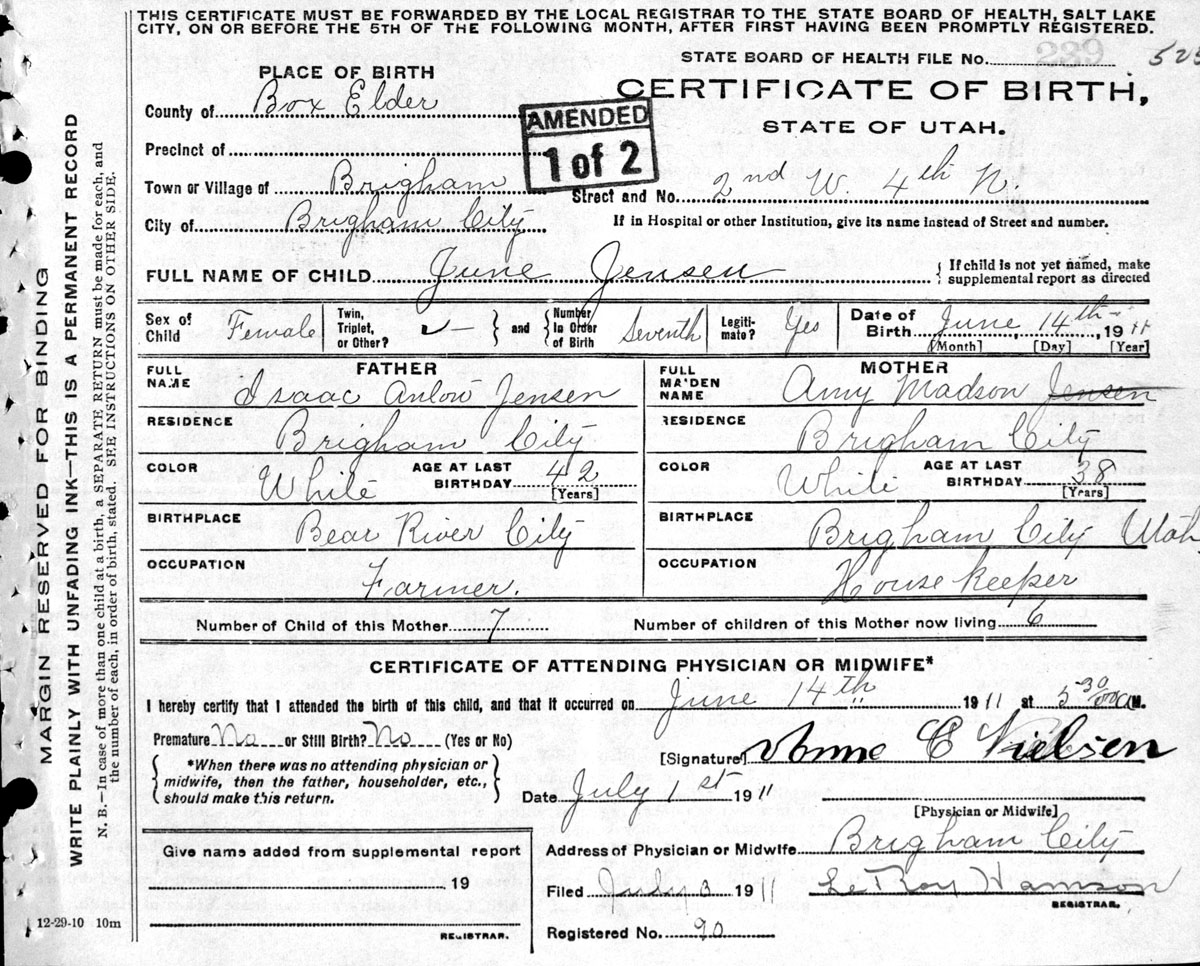 THIS CERTIFICATE MUST BE FORWARDED BY THE LOCAL REGISTRAR TO THE STATE BOARD OF HEALTH, SALT LAKE
CITY, ON OR BEFORE THE 5TH OF THE FOLLOWING MONTH, AFTER FIRST HAVING BEEN PROMPTLY REGISTERED.
STATE BOARD OF HEALTH FILE No. 239 525
PLACE OF BIRTH
CERTIFICATE OF BIRTH,
STATE OF UTAH.
County of Box Elder
AMENDED
1 of 2
Precinct of
Town or Village of Brigham
Street and No. 2nd W. 4th N.
City of Brigham City
If in Hospital or other Institution, give its name instead of Street and number.
FULL NAME OF CHILD June Jensen
{ If child is not yet named, make
supplemental report as directed
Sex of Child Female
Twin, Triplet, or Other?
and
Number In Order of Birth Seventh
Legitimate? Yes
Date of Birth June 14th, 1911
[Month] [Day] [Year]
FATHER
FULL NAME Isaac Jensen
RESIDENCE Brigham City
COLOR White
AGE AT LAST BIRTHDAY 42
[Years]
BIRTHPLACE Bear River City
OCCUPATION Farmer.
MOTHER
FULL MAIDEN NAME Amy Madson Jensen
RESIDENCE Brigham City
COLOR White
AGE AT LAST BIRTHDAY 38
[Years]
BIRTHPLACE Brigham City Utah
OCCUPATION House keeper
Number of Child of this Mother 7
Number of children of this Mother now living 6
CERTIFICATE OF ATTENDING PHYSICIAN OR MIDWIFE*
I hereby certify that I attended the birth of this child, and that it occurred on June 14th 1911 at 5 30 M.
Premature No or Still Birth? No (Yes or No)
*When there was no attending physician or
midwife, then the father, householder, etc.,
should make this return.
[Signature] Anne C Nielsen
Date July 1st 1911
[Physician or Midwife]
Give name added from supplemental report
19
REGISTRAR.
Address of Physician or Midwife Brigham City
Filed July 3 1911
REGISTRAR.
Registered No. 90
12-29-10 10m
MARGIN RESERVED FOR BINDING
WRITE PLAINLY WITH UNFADING INK—THIS IS A PERMANENT RECORD
N. B.—In case of more than one child at a birth, a SEPARATE RETURN must be made for each, and
the number of each, in order of birth, stated. SEE INSTRUCTIONS ON OTHER SIDE.